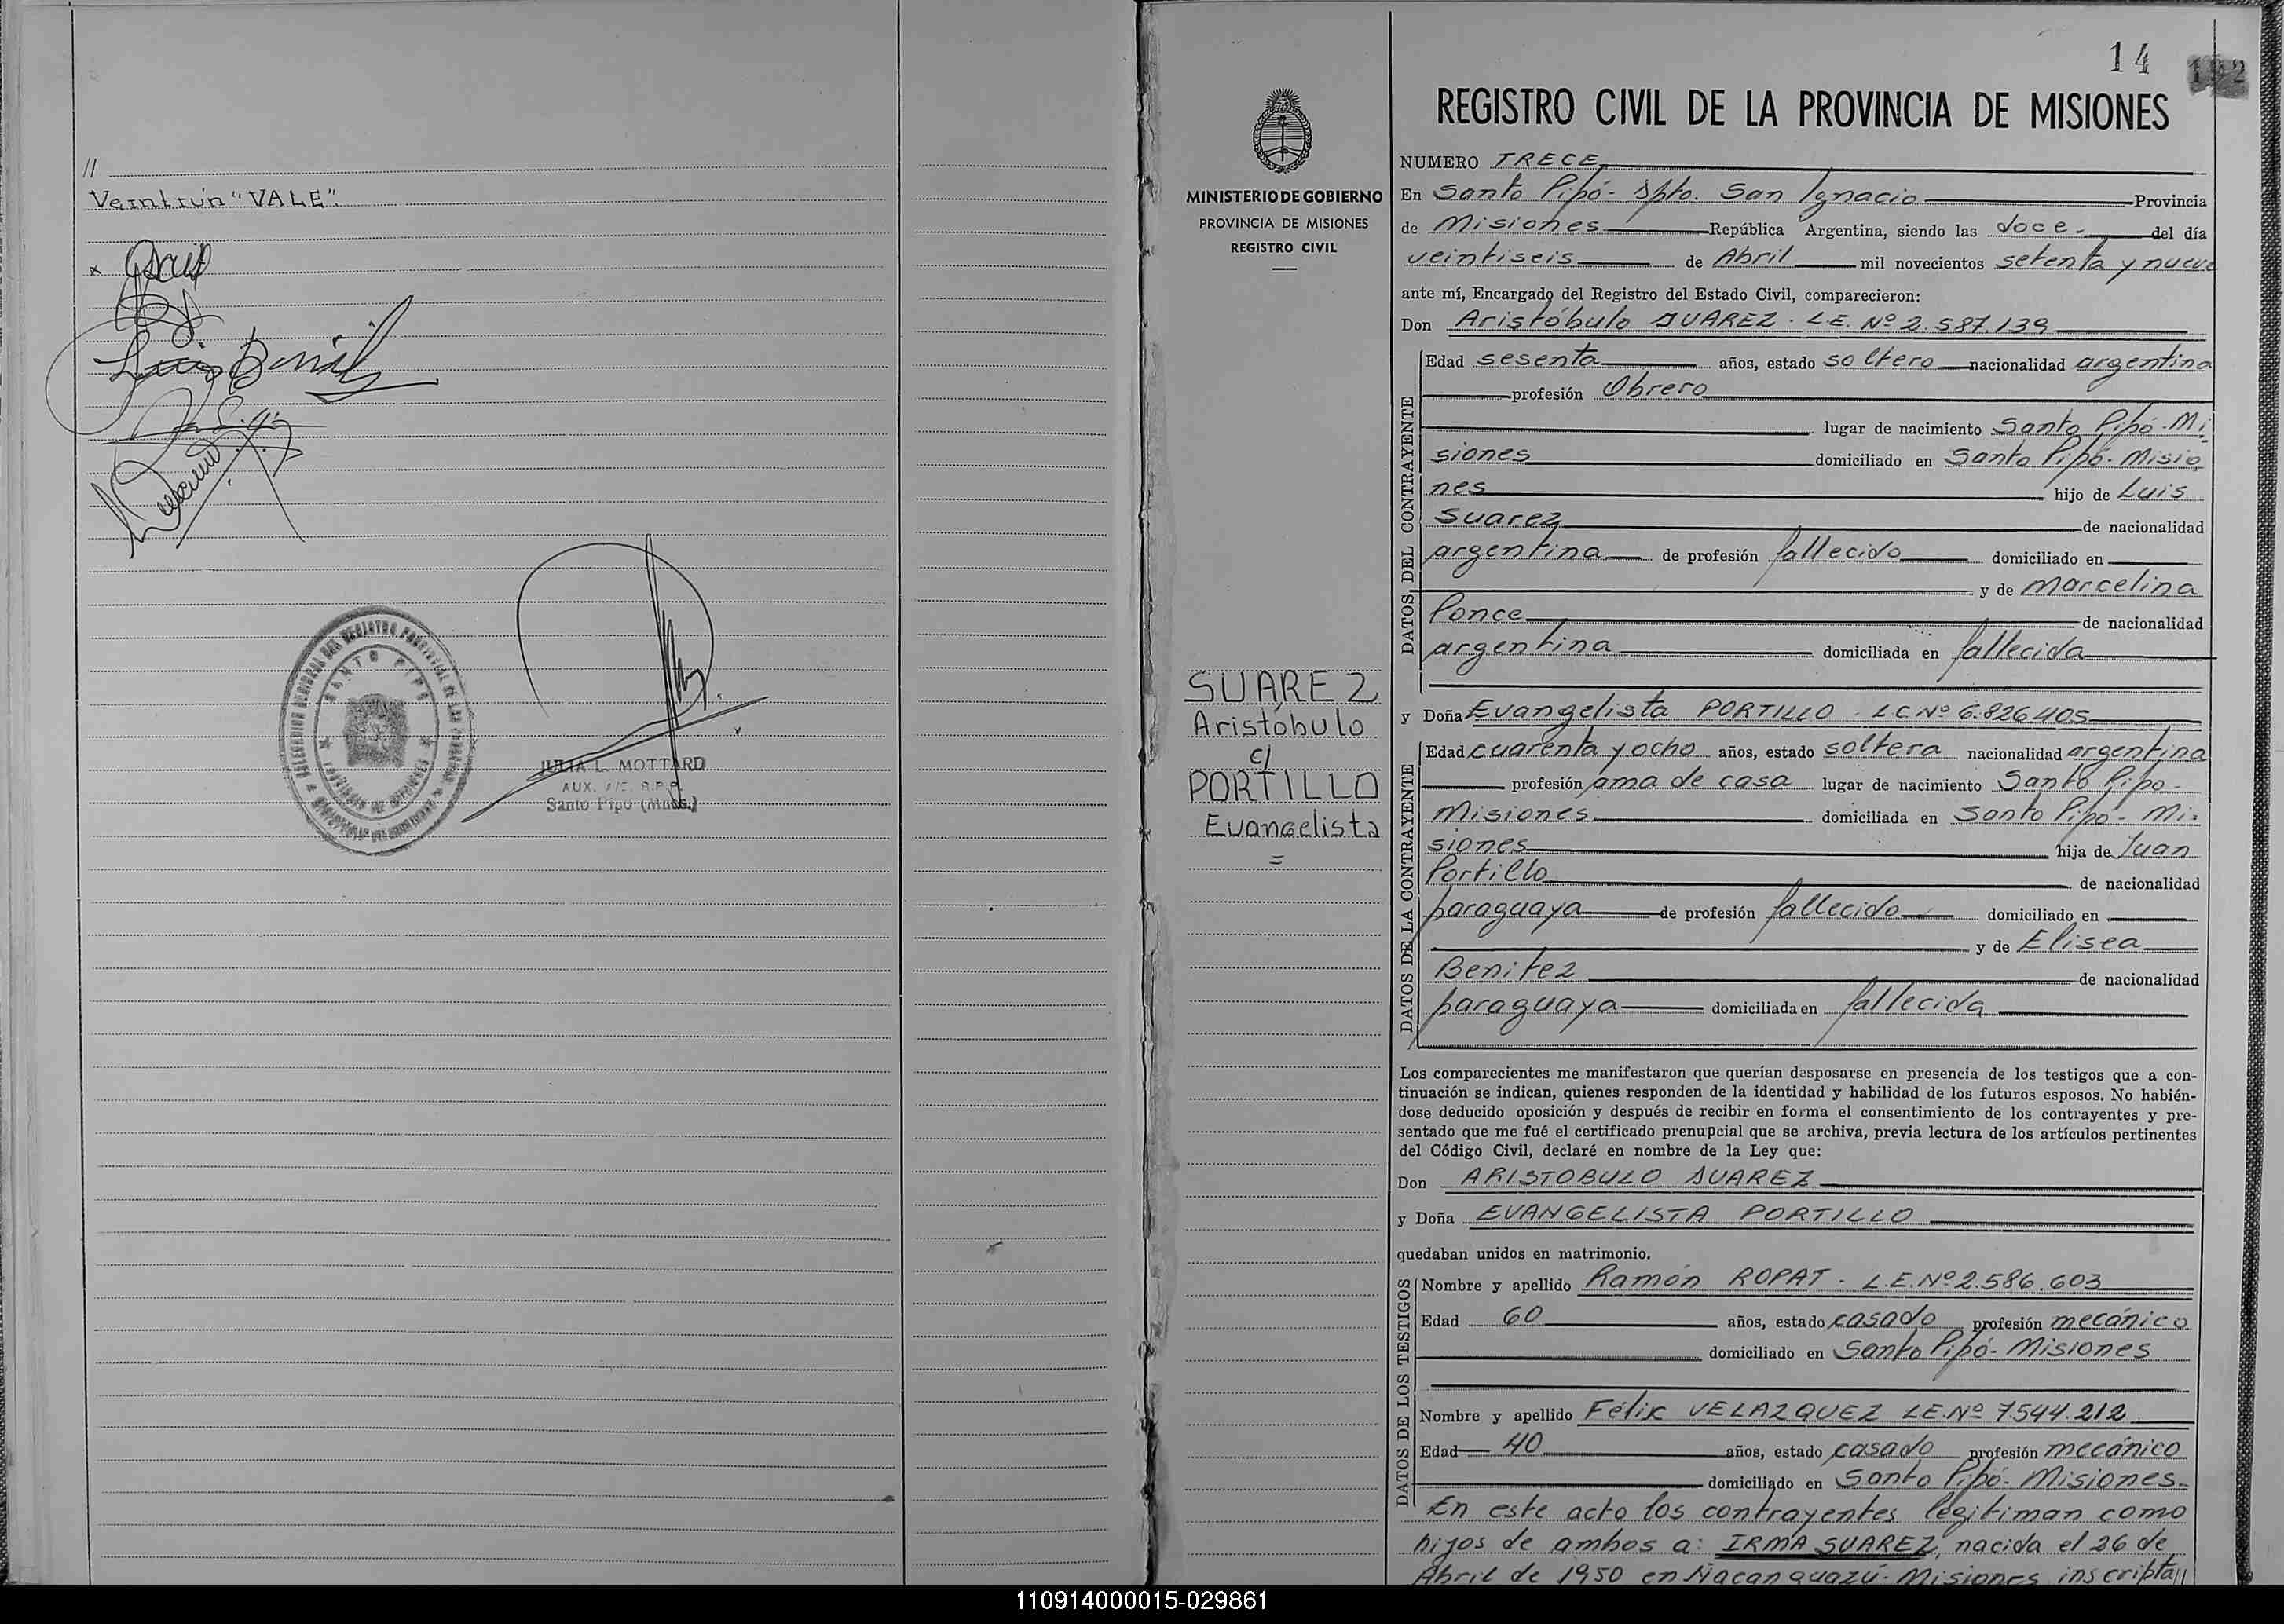 //
Veintiún "VALE".
x
SANTO PIPO
JULIA L. MOTTARD
AUX. A/C. R.P.P.
Santo Pipo (Mnes.)
14
MINISTERIO DE GOBIERNO
PROVINCIA DE MISIONES
REGISTRO CIVIL
SUAREZ
Aristóbulo
c/
PORTILLO
Evangelista
=
REGISTRO CIVIL DE LA PROVINCIA DE MISIONES
NUMERO TRECE
En Santo Pipó - Dpto. San Ignacio Provincia
de Misiones República Argentina, siendo las doce - del día
veintiseis de Abril mil novecientos setenta y nueve
ante mí, Encargado del Registro del Estado Civil, comparecieron:
Don Aristóbulo SUAREZ - L.E. Nº 2.587.139
DATOS DEL CONTRAYENTE
Edad sesenta años, estado soltero nacionalidad argentina
profesión Obrero
lugar de nacimiento Santo Pipó - Mi
siones domiciliado en Santo Pipó - Misio
nes hijo de Luis
Suarez de nacionalidad
argentina de profesión fallecido domiciliado en
y de Marcelina
Ponce de nacionalidad
argentina domiciliada en fallecida
y Doña Evangelista PORTILLO - L.C. Nº 6.826.405
DATOS DE LA CONTRAYENTE
Edad cuarenta y ocho años, estado soltera nacionalidad argentina
profesión ama de casa lugar de nacimiento Santo Pipo -
Misiones domiciliada en Santo Pipó - Mi-
siones hija de Juan
Portillo de nacionalidad
paraguaya de profesión fallecido domiciliado en
y de Elisea
Benitez de nacionalidad
paraguaya domiciliada en fallecida
Los comparecientes me manifestaron que querían desposarse en presencia de los testigos que a con-
tinuación se indican, quienes responden de la identidad y habilidad de los futuros esposos. No habién-
dose deducido oposición y después de recibir en forma el consentimiento de los contrayentes y pre-
sentado que me fué el certificado prenupcial que se archiva, previa lectura de los artículos pertinentes
del Código Civil, declaré en nombre de la Ley que:
Don ARISTOBULO SUAREZ
y Doña EVANGELISTA PORTILLO
quedaban unidos en matrimonio.
DATOS DE LOS TESTIGOS
Nombre y apellido Ramón ROPAT - L.E. Nº 2.586.603
Edad 60 años, estado casado profesión mecánico
domiciliado en Santo Pipó - Misiones
Nombre y apellido Félix VELAZQUEZ L.E. Nº 7.544.212
Edad 40 años, estado casado profesión mecánico
domiciliado en Santo Pipó - Misiones -
En este acto los contrayentes legitiman como
hijos de ambos a: IRMA SUAREZ, nacida el 26 de
Abril de 1950 en Ñacanguazú - Misiones inscripta //
110914000015-029861